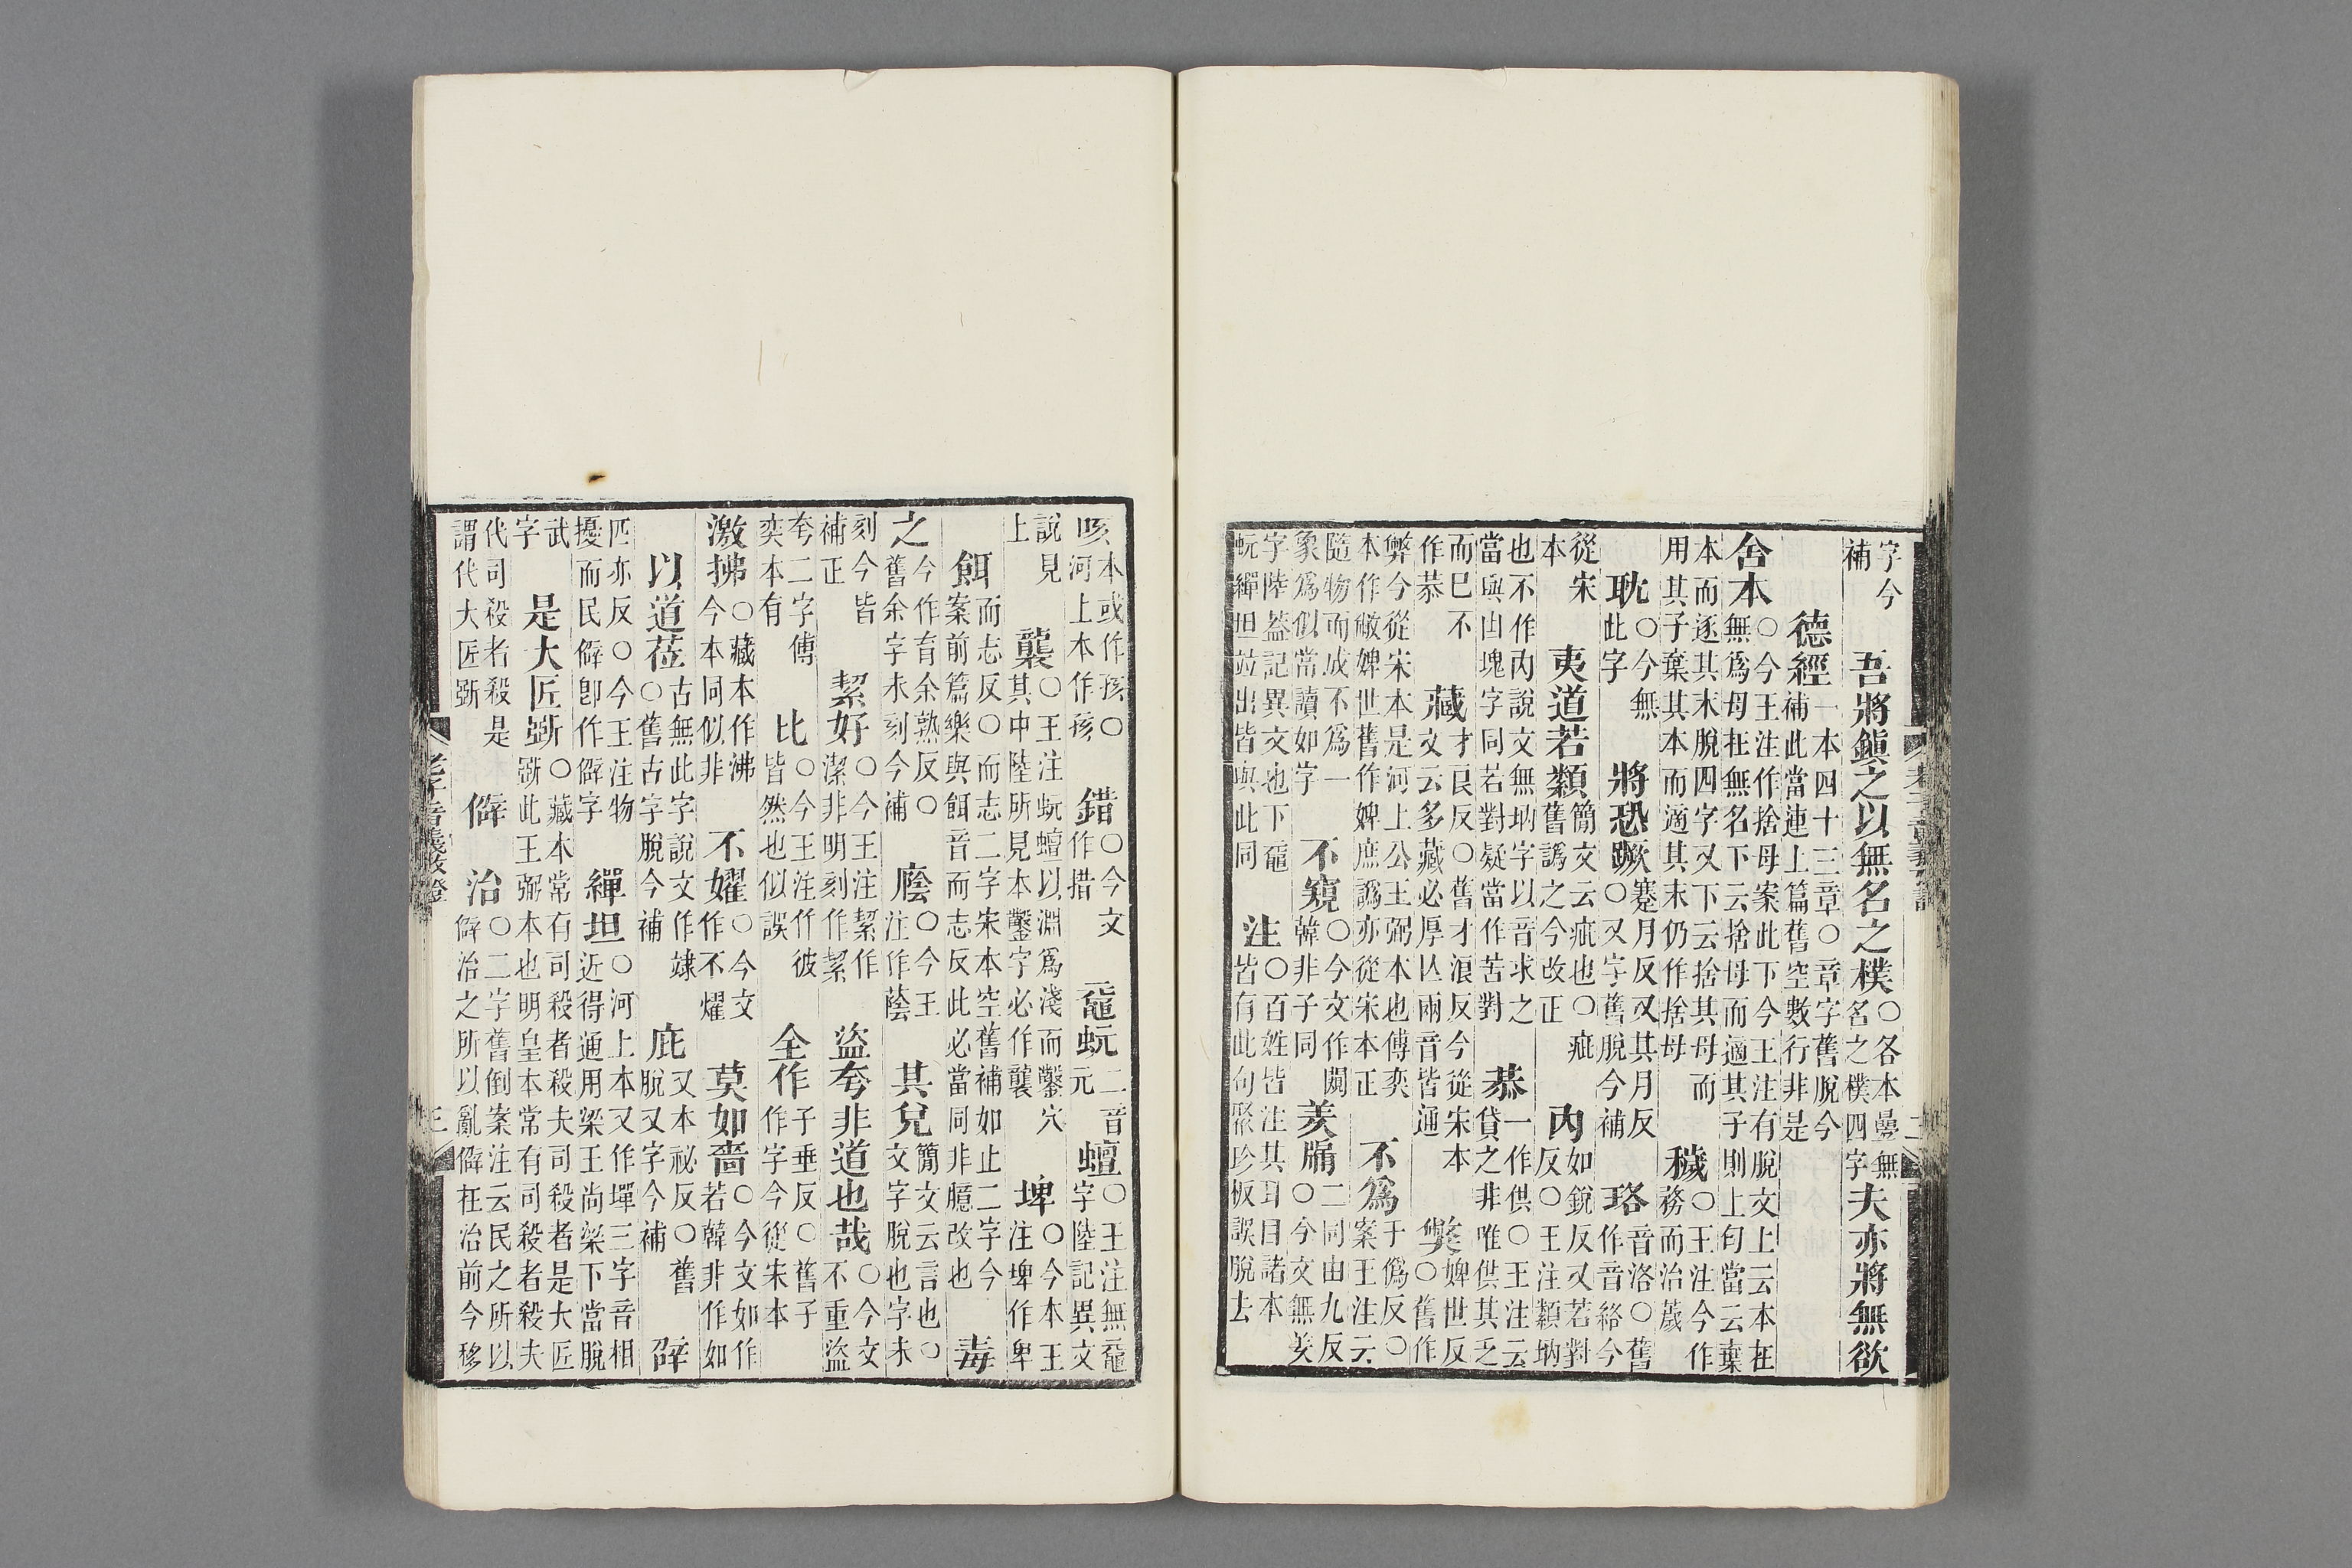 字今補　吾將鎮之以無名之樸○各本疊無名之樸四字夫亦將無欲
德經一本四十三章○章字舊脫今補此當連上篇舊空數行非是
舍本○今王注作捨母案此下今王注有脫文上云本在無爲母在無名下云捨母而適其子則上句當云棄
本而逐其末脫四字又下云捨其母而用其子棄其本而適其末仍作捨母　穢○王注今作務而治薉
耽○今無此字　將恐蹶蹇月反又其月反○又字舊脫今補　珞音洛○舊作音絡今
從宋本　夷道若類簡文云疵也○疵舊譌之今改正　內如銳反又若對反○王注纇㘨
也不作內說文無㘨字以音求之當與凷塊字同若對疑當作苦對　恭一作供○王注云貸之非唯供其乏
而已不作恭　藏才艮反○舊才浪反今從宋本文云多藏必厚亾兩音皆通　獘婢世反○舊作
弊今從宋本是河上公王弼本也傅奕本作敝婢世舊作婢庶譌亦從宋本正　不爲于僞反○案王注云
隨物而成不爲一象爲似常讀如字　不窺○今文作闚韓非子同　羑牖二同由九反○今文無羑
字陸蓋記異文也下黿蚖繟坦竝出皆與此同　注○百姓皆注其耳目諸本皆有此句聚珍板誤脫去
咳本或作孩○河上本作孩　錯○今文作措　黿蚖二音元蟺○王注無黿字陸記異文
說見上　襲○王注蚖蟺以淵爲淺而鑿穴其中陸所見本鑿字必作襲　埤○今本王注埤作卑
餌而志反○而志二字宋本空舊補如止二字今案前篇樂與餌音而志反此必當同非臆改也　毒
之今作育余熟反○舊余字未刻今補　廕○今王注作蔭　其兒簡文云言也○文字脫也字未
刻今皆補正　絜好○今王注絜作潔非明刻作挈　盜夸非道也哉○今文不重盜
夸二字傅奕本有　比○今王注仵彼皆然也似誤　全作子垂反○舊子作字今從宋本
激拂○藏本作沸今本同似非　不嬥○今文作不燿　莫如嗇○今文如作若韓非作如
以道莅古無此字說文作竦○舊古字脫今補　庇又本祕反○舊脫又字今補　辟
匹亦反○今王注物擾而民僻卽作僻字　繟坦○河上本又作墠三字音相近得通用梁王尚梁下當脫
武字　是大匠斲○藏本常有司殺者殺夫司殺者是大匠斲此王弼本也明皇本常有司殺者殺夫
代司殺者殺是謂代大匠斲　僻　治○二字舊倒案注云民之所以僻治之所以亂僻在治前今移
老子音義攷證　三